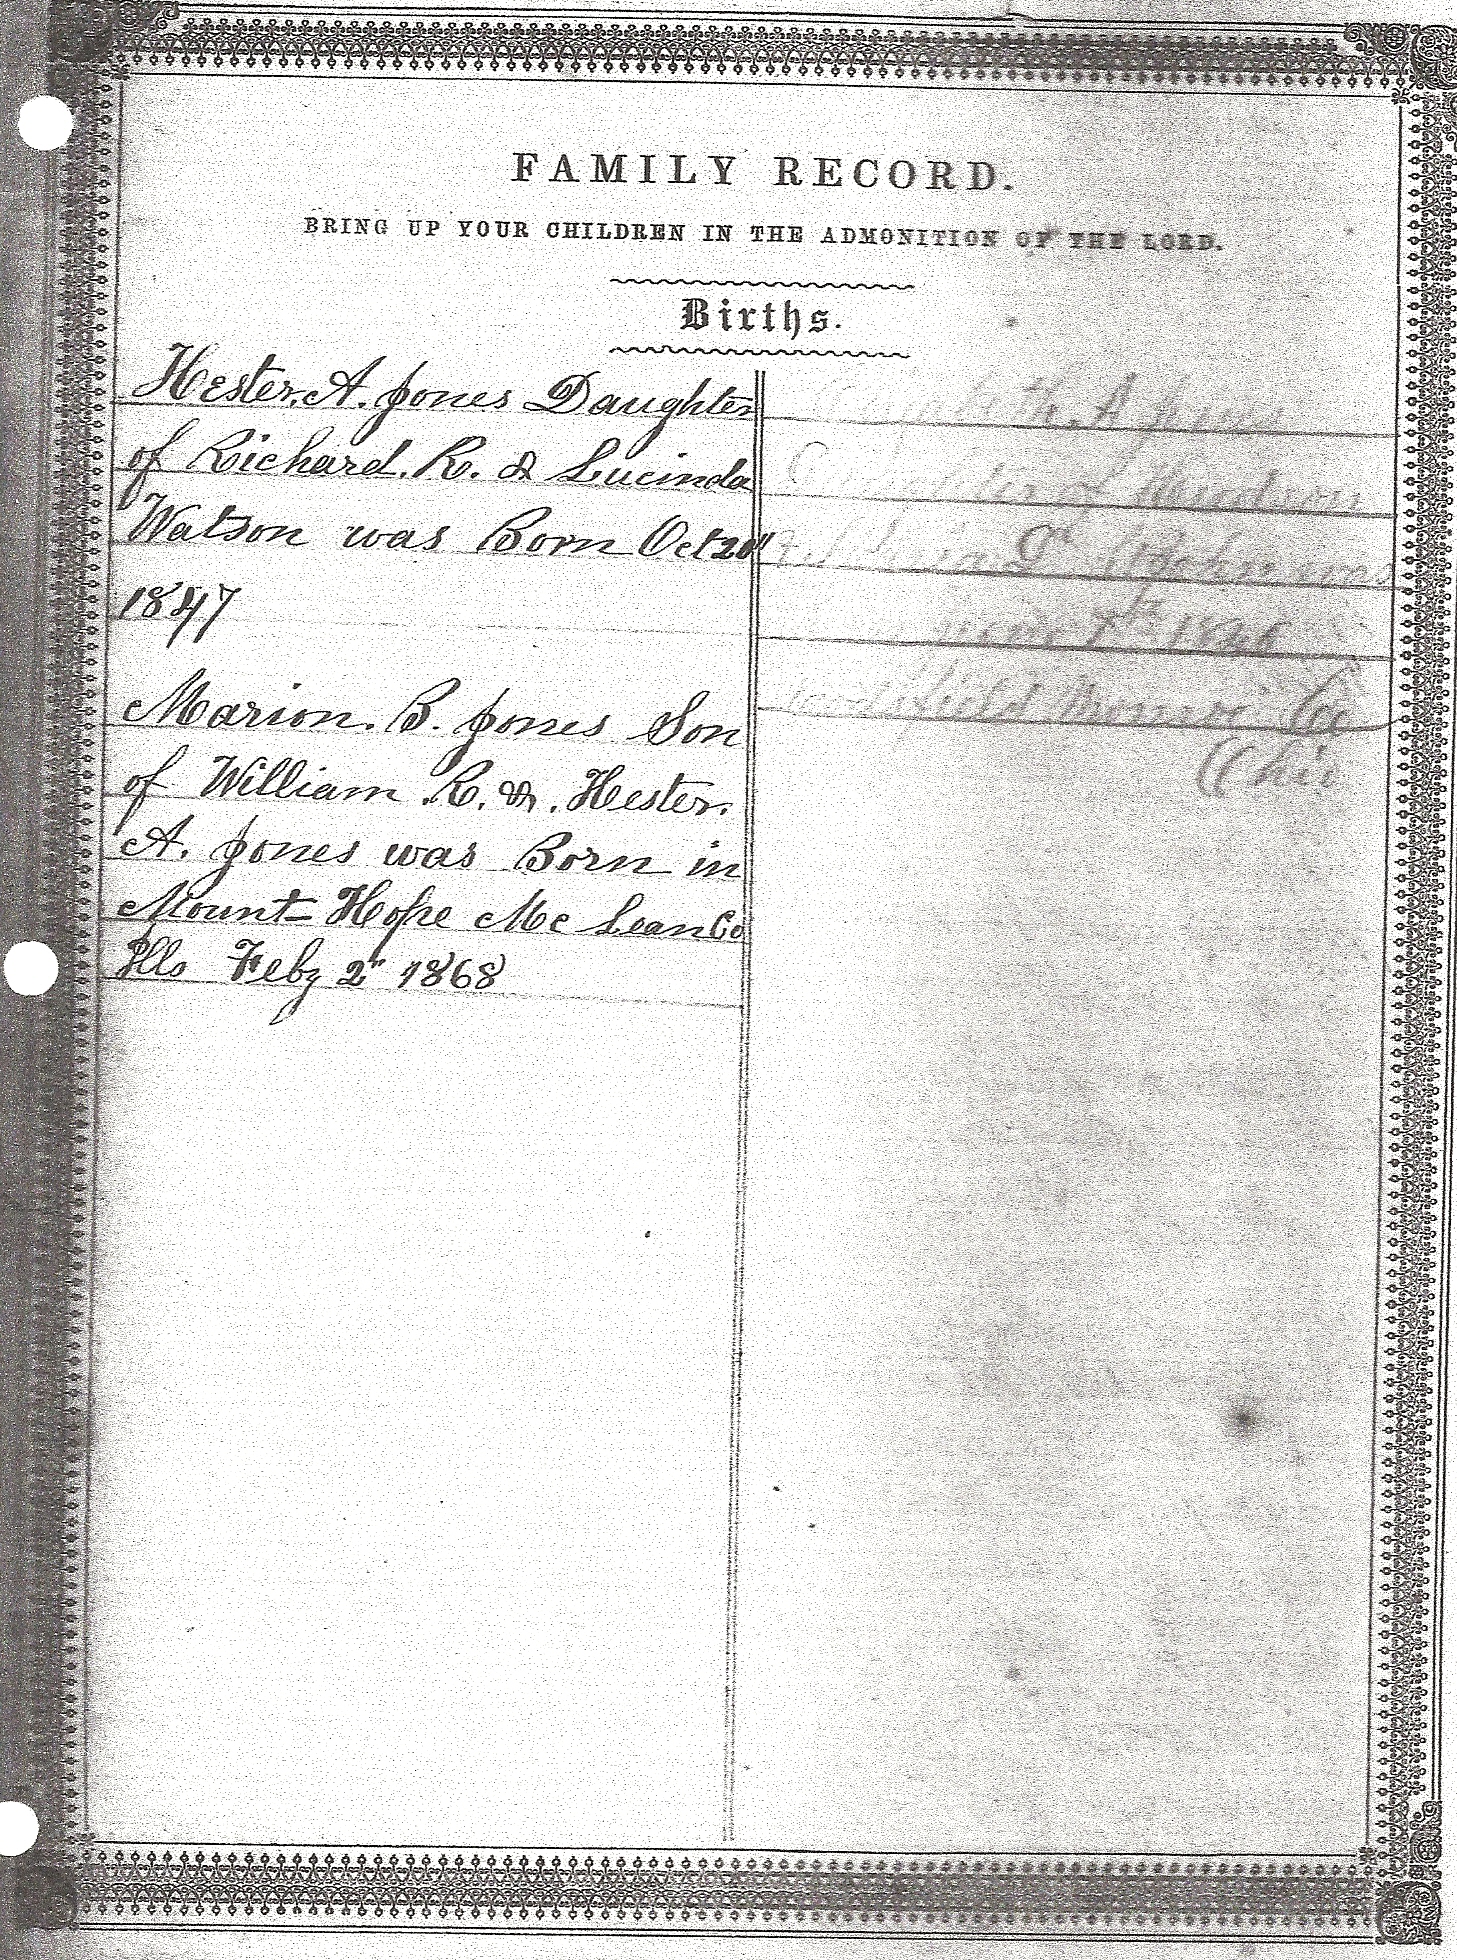 FAMILY RECORD.
BRING UP YOUR CHILDREN IN THE ADMONITION OF THE LORD.
Births.
Hester. A. Jones Daughter
of Richard. R. & Lucinda
Watson was Born Oct 20"
1847
Marion. B. Jones Son
of William. R. &. Hester.
A. Jones was Born in
Mount Hope Mc Lean Co
Ills Feby 2" 1868
A Jones
Daughter of
was
7th
Monroe Co
Ohio